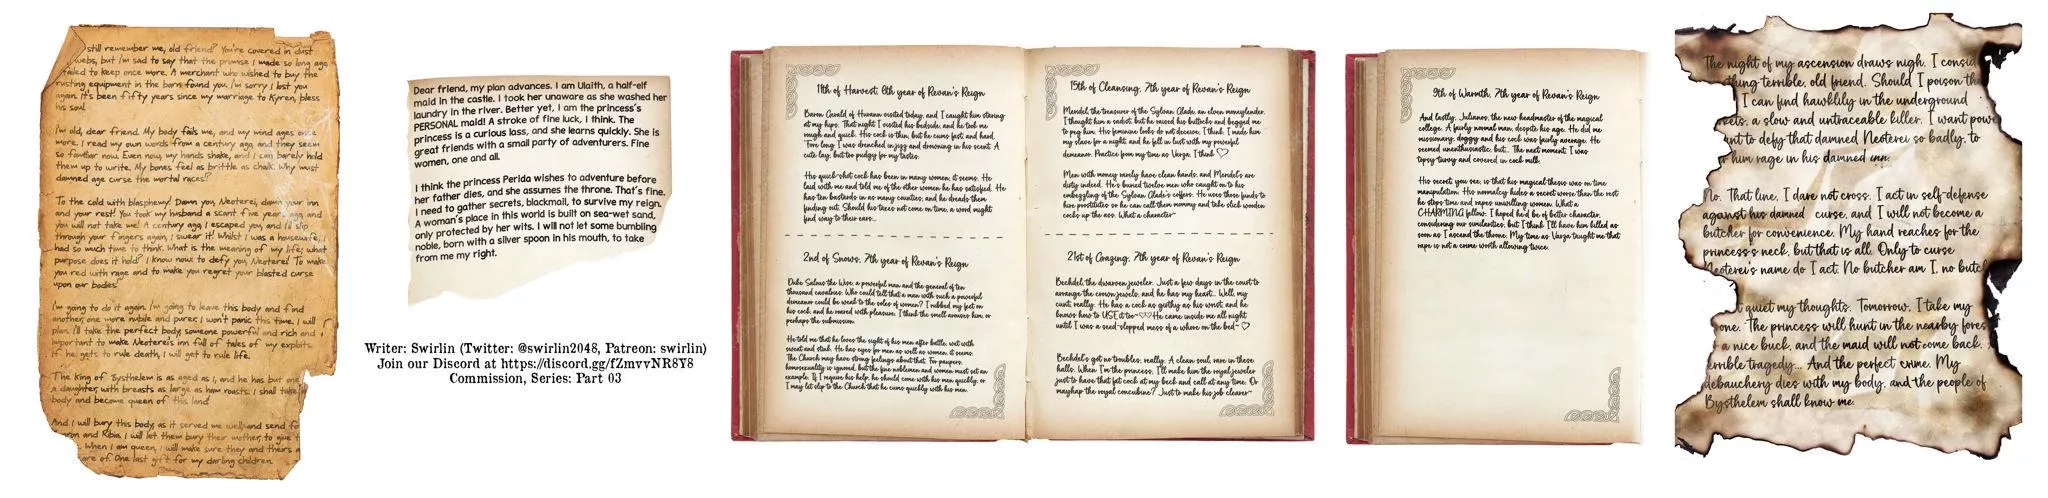 still remember me, old friend? You're covered in dust
webs, but I'm sad to say that the promise I made so long ago
failed to keep once more. A merchant who wished to buy the
rusting equipment in the barn found you. I'm sorry I lost you
again. It's been fifty years since my marriage to Kyren, bless
his soul.
I'm old, dear friend. My body fails me, and my mind ages once
more. I read my own words from a century ago, and they seem
so familiar now. Even now, my hands shake, and I can barely hold
them up to write. My bones feel as brittle as chalk. Why must
damned age curse the mortal races!?
To the cold with blasphemy! Damn you, Neoterei, damn your inn
and your rest! You took my husband a scant five years ago, and
you will not take me! A century ago, I escaped you, and I'll slip
through your fingers again, I swear it! Whilst I was a housewife, I
had so much time to think. What is the meaning of my life; what
purpose does it hold? I know now: to defy you, Neoterei! To make
you red with rage and to make you regret your blasted curse
upon our bodies!
I'm going to do it again. I'm going to leave this body and find
another, one more nubile and purer. I won't panic this time. I will
plan. I'll take the perfect body, someone powerful and rich and
important to make Neoterei's inn full of tales of my exploits.
If he gets to rule death, I will get to rule life.
The King of Bysthelem is as aged as I, and he has but one
a daughter, with breasts as large as ham roasts. I shall take
body and become queen of this land!
And I will bury this body, as it served me well, and send for
ron and Ribia. I will let them bury their mother, to give t
When I am queen, I will make sure they and theirs a
are of. One last gift for my darling children.
Dear friend, my plan advances. I am Ulaith, a half-elf
maid in the castle. I took her unaware as she washed her
laundry in the river. Better yet, I am the princess's
PERSONAL maid! A stroke of fine luck, I think. The
princess is a curious lass, and she learns quickly. She is
great friends with a small party of adventurers. Fine
women, one and all.
I think the princess Perida wishes to adventure before
her father dies, and she assumes the throne. That's fine.
I need to gather secrets, blackmail, to survive my reign.
A woman's place in this world is built on sea-wet sand,
only protected by her wits. I will not let some bumbling
noble, born with a silver spoon in his mouth, to take
from me my right.
Writer: Swirlin (Twitter: @swirlin2048, Patreon: swirlin)
Join our Discord at https://discord.gg/fZmvvNR8Y8
Commission, Series: Part 03
11th of Harvest, 8th year of Revan's Reign
Baron Gerald of Humann visited today, and I caught him staring
at my hips. That night I visited his bedside, and he took me
rough and quick. His cock is thin, but he cums fast, and hard.
'Fore long I was drenched in jizz and drowning in his scent. A
cute lay, but too pudgy for my tastes.
His quick-shot cock has been in many women, it seems. He
laid with me and told me of the other women he has satisfied. He
has ten bastards in as many counties, and he dreads them
finding out. Should his taxes not come on time, a word might
find way to their ears...
2nd of Snows, 7th year of Revan's Reign
Duke Salmus the Wise, a powerful man and the general of ten
thousand cavalries. Who could tell that a man with such a powerful
demeanor could be weak to the soles of women? I rubbed my feet on
his cock, and he moaned with pleasure. I think the smell arouses him, or
perhaps the submission.
He told me that he loves the sight of his men after battle, wet with
sweat and stink. He has eyes for men as well as women, it seems.
The Church may have strong feelings about that. For paupers,
homosexuality is ignored, but the fine noblemen and women must set an
example. If I require his help, he should come with his men quickly, or
I may let slip to the Church that he cums quickly with his men.
15th of Cleansing, 7th year of Revan's Reign
Mendel, the treasurer of the Sylvan Glade, an elven moneylender.
I thought him a sadist, but he raised his buttocks and begged me
to peg him. His feminine looks do not deceive, I think. I made him
my slave for a night, and he fell in lust with my powerful
demeanor. Practice from my time as Varza, I think ♡
Men with money rarely have clean hands, and Mendel's are
dirty indeed. He's buried twelve men who caught on to his
embezzling of the Sylvan Glade's coffers. He uses those funds to
hire prostitutes so he can call them mommy and take slick wooden
cocks up the ass. What a character~
21st of Grazing, 7th year of Revan's Reign
Bechdel, the dwarven jeweler. Just a few days in the court to
arrange the crown jewels, and he has my heart... Well, my
cunt, really. He has a cock as girthy as his wrist, and he
knows how to USE it too~♡♡ He came inside me all night
until I was a seed-slopped mess of a whore on the bed~ ♡
Bechdel's got no troubles, really. A clean soul, rare in these
halls. When I'm the princess, I'll make him the royal jeweler
just to have that fat cock at my beck and call at any time. Or
mayhap the royal concubine? Just to make his job clearer~
9th of Warmth, 7th year of Revan's Reign
And lastly, Julianos, the new headmaster of the magical
college. A fairly normal man, despite his age. He did me
missionary, doggy and his cock was fairly average. He
seemed unenthusiastic, but... The next moment, I was
topsy-turvy and covered in cock milk.
His secret, you see, is that his magical thesis was on time
manipulation. His normalcy hides a secret worse than the rest:
he stops time and rapes unwilling women. What a
CHARMING fellow. I hoped he'd be of better character,
considering our similarities, but I think I'll have him killed as
soon as I ascend the throne. My time as Varza taught me that
rape is not a crime worth allowing twice.
The night of my ascension draws nigh. I consid
thing terrible, old friend. Should I poison th
I can find hawklily in the underground
kets, a slow and untraceable killer. I want powe
ant to defy that damned Neoterei so badly, to
him rage in his damned inn.
No. That line, I dare not cross. I act in self-defense
against his damned curse, and I will not become a
butcher for convenience. My hand reaches for the
princess's neck, but that is all. Only to curse
Neoterei's name do I act. No butcher am I, no butch
t quiet my thoughts. Tomorrow, I take my
one. The princess will hunt in the nearby fores
a nice buck, and the maid will not come back.
errible tragedy... And the perfect crime. My
debauchery dies with my body, and the people of
Bysthelem shall know me.